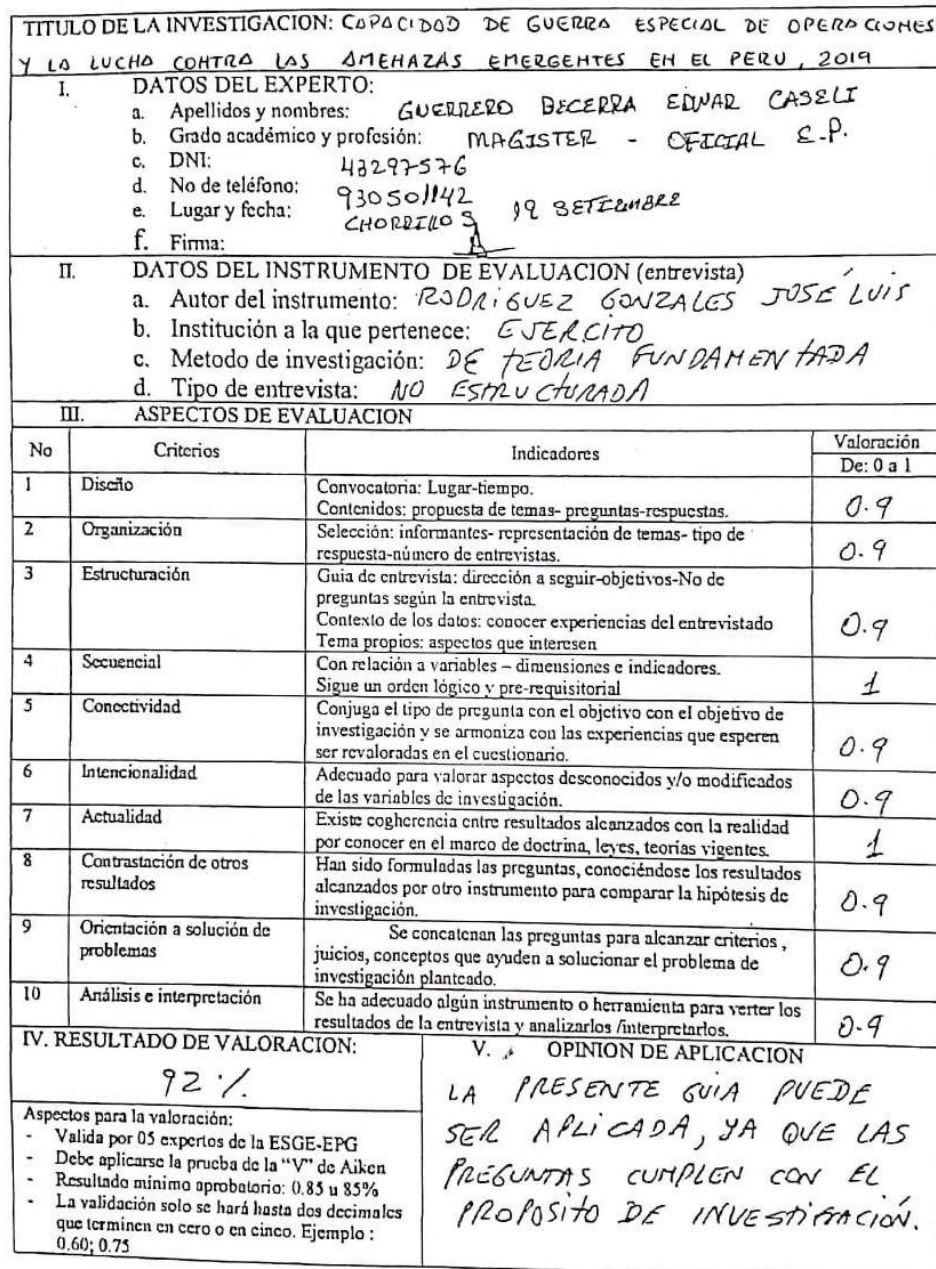 TITULO DE LA INVESTIGACION: CAPACIDAD DE GUERRA ESPECIAL DE OPERACIONES
Y LA LUCHA CONTRA LAS AMENAZAS EMERGENTES EN EL PERU, 2019
I. DATOS DEL EXPERTO:
a. Apellidos y nombres: GUERRERO BECERRA EDWAR CASELI
b. Grado académico y profesión: MAGISTER - OFICIAL E.P.
c. DNI: 43297576
d. No de teléfono: 930501142
e. Lugar y fecha: CHORRILLOS 19 SETIEMBRE
f. Firma:
II. DATOS DEL INSTRUMENTO DE EVALUACION (entrevista)
a. Autor del instrumento: RODRIGUEZ GONZALES JOSÉ LUIS
b. Institución a la que pertenece: EJERCITO
c. Metodo de investigación: DE TEORIA FUNDAMENTADA
d. Tipo de entrevista: NO ESTRUCTURADA
III. ASPECTOS DE EVALUACION
No Criterios Indicadores Valoración
De: 0 a 1
1 Diseño Convocatoria: Lugar-tiempo.
Contenidos: propuesta de temas- preguntas-respuestas. 0.9
2 Organización Selección: informantes- representación de temas- tipo de
respuesta-número de entrevistas. 0.9
3 Estructuración Guia de entrevista: dirección a seguir-objetivos-No de
preguntas según la entrevista.
Contexto de los datos: conocer experiencias del entrevistado 0.9
Tema propios: aspectos que interesen
4 Secuencial Con relación a variables – dimensiones e indicadores.
Sigue un orden lógico y pre-requisitorial 1
5 Conectividad Conjuga el tipo de pregunta con el objetivo con el objetivo de
investigación y se armoniza con las experiencias que esperen
ser revaloradas en el cuestionario. 0.9
6 Intencionalidad Adecuado para valorar aspectos desconocidos y/o modificados
de las variables de investigación. 0.9
7 Actualidad Existe cogherencia entre resultados alcanzados con la realidad
por conocer en el marco de doctrina, leyes, teorías vigentes. 1
8 Contrastación de otros Han sido formuladas las preguntas, conociéndose los resultados
resultados alcanzados por otro instrumento para comparar la hipótesis de
investigación. 0.9
9 Orientación a solución de Se concatenan las preguntas para alcanzar criterios ,
problemas juicios, conceptos que ayuden a solucionar el problema de
investigación planteado. 0.9
10 Análisis e interpretación Se ha adecuado algún instrumento o herramienta para verter los
resultados de la entrevista y analizarlos /interpretarlos. 0.9
IV. RESULTADO DE VALORACION:
92 %
Aspectos para la valoración:
- Valida por 05 expertos de la ESGE-EPG
- Debe aplicarse la prueba de la "V" de Aiken
- Resultado mínimo aprobatorio: 0.85 u 85%
- La validación solo se hará hasta dos decimales
que terminen en cero o en cinco. Ejemplo :
0.60; 0.75
V. OPINION DE APLICACION
LA PRESENTE GUIA PUEDE
SER APLICADA, YA QUE LAS
PREGUNTAS CUMPLEN CON EL
PROPOSITO DE INVESTIGACIÓN.